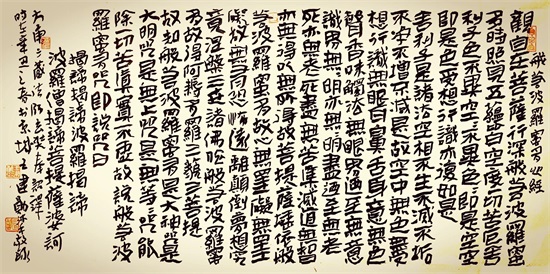 般若波羅蜜多心經
觀自在菩薩行深般若波羅蜜
多時照見五蘊皆空度一切苦厄舍
利子色不異空空不異色色即是空空
即是色受想行識亦復如是
舍利子是諸法空相不生不滅不垢
不淨不增不減是故空中無色無受
想行識無眼耳鼻舌身意無色
聲香味觸法無眼界乃至無意
識界無無明亦無無明盡乃至無老
死亦無老死盡無苦集滅道無智
亦無得以無所得故菩提薩埵依般
若波羅蜜多故心無罣礙無罣
礙故無有恐怖遠離顛倒夢想究
竟涅槃三世諸佛依般若波羅蜜
多故得阿耨多羅三藐三菩提
故知般若波羅蜜多是大神咒是
大明咒是無上咒是無等等咒能
除一切苦真實不虛故說般若波
羅蜜多咒即說咒曰
揭諦揭諦波羅揭諦
波羅僧揭諦菩提薩婆訶
大唐三藏法師玄奘奉詔譯
時在辛丑之春